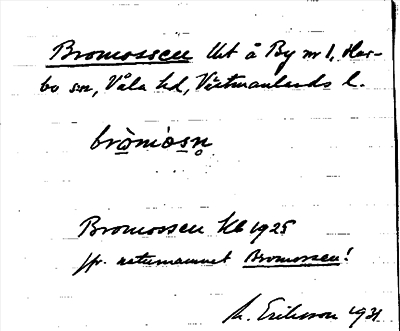 Bromossen Lht å By nr 1, Har-
bo sn, Våla hd, Västmanlands l.
bròmòsn̥
Bromossen Kb 1925
jfr naturnamnet Bromossen!
M. Eriksson 1931